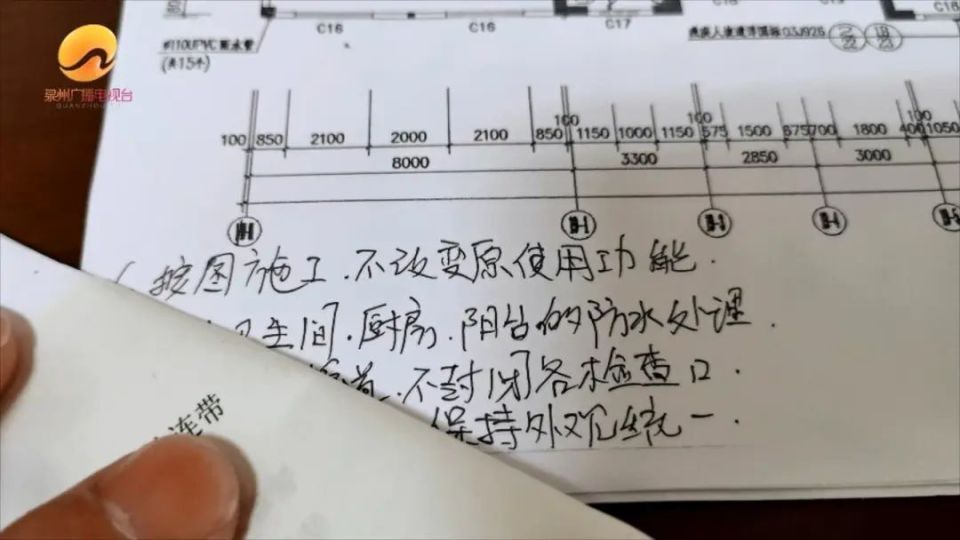 泉州广播电视台
QUANZHOU
C16
C16
C17
C18
(共15个)
残疾人坡道详国标03J926
22
23
100 850 2100 2000 2100 850 100 1150 1000 1150 100 575 1500 675 700 1800 400 100 1050
8000 3300 2850 3000
按图施工.不改变原使用功能.
卫生间.厨房.阳台的防水处理.
不封闭各检查口.
保持外观统一.
连带